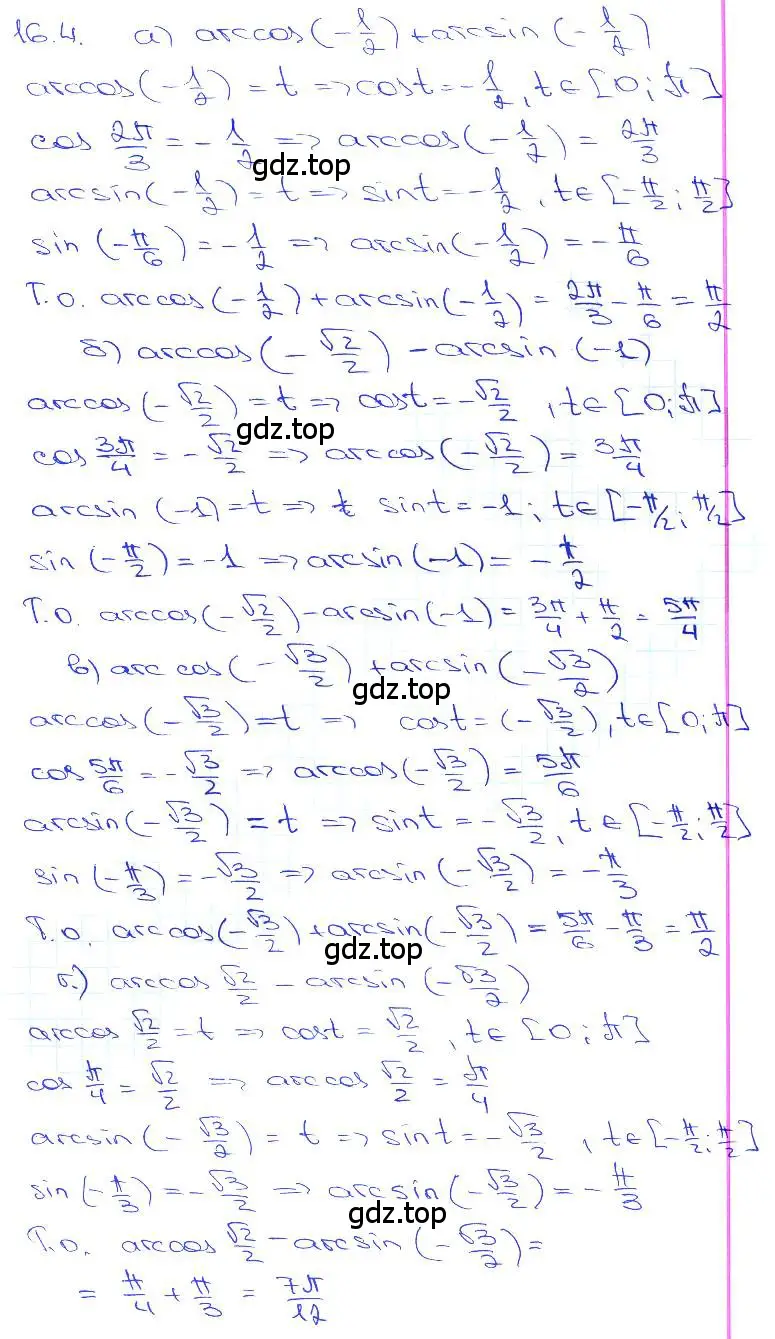 16.4. а) arccos(-1/2) + arcsin(-1/2)
arccos(-1/2) = t => cost = -1/2, t ∈ [0; π]
cos 2π/3 = -1/2 => arccos(-1/2) = 2π/3
gdz.top
arcsin(-1/2) = t => sint = -1/2, t ∈ [-π/2; π/2]
sin(-π/6) = -1/2 => arcsin(-1/2) = -π/6
Т.о. arccos(-1/2) + arcsin(-1/2) = 2π/3 - π/6 = π/2
б) arccos(-√2/2) - arcsin(-1)
arccos(-√2/2) = t => cost = -√2/2, t ∈ [0; π]
gdz.top
cos 3π/4 = -√2/2 => arccos(-√2/2) = 3π/4
arcsin(-1) = t => t sint = -1; t ∈ [-π/2; π/2]
sin(-π/2) = -1 => arcsin(-1) = -π/2
Т.о. arccos(-√2/2) - arcsin(-1) = 3π/4 + π/2 = 5π/4
в) arccos(-√3/2) + arcsin(-√3/2)
gdz.top
arccos(-√3/2) = t => cost = (-√3/2), t ∈ [0; π]
cos 5π/6 = -√3/2 => arccos(-√3/2) = 5π/6
arcsin(-√3/2) = t => sint = -√3/2, t ∈ [-π/2; π/2]
sin(-π/3) = -√3/2 => arcsin(-√3/2) = -π/3
Т.о. arccos(-√3/2) + arcsin(-√3/2) = 5π/6 - π/3 = π/2
gdz.top
г) arccos √2/2 - arcsin(-√3/2)
arccos √2/2 = t => cost = √2/2, t ∈ [0; π]
cos π/4 = √2/2 => arccos √2/2 = π/4
arcsin(-√3/2) = t => sint = -√3/2, t ∈ [-π/2; π/2]
sin(-π/3) = -√3/2 => arcsin(-√3/2) = -π/3
gdz.top
Т.о. arccos √2/2 - arcsin(-√3/2) =
= π/4 + π/3 = 7π/12